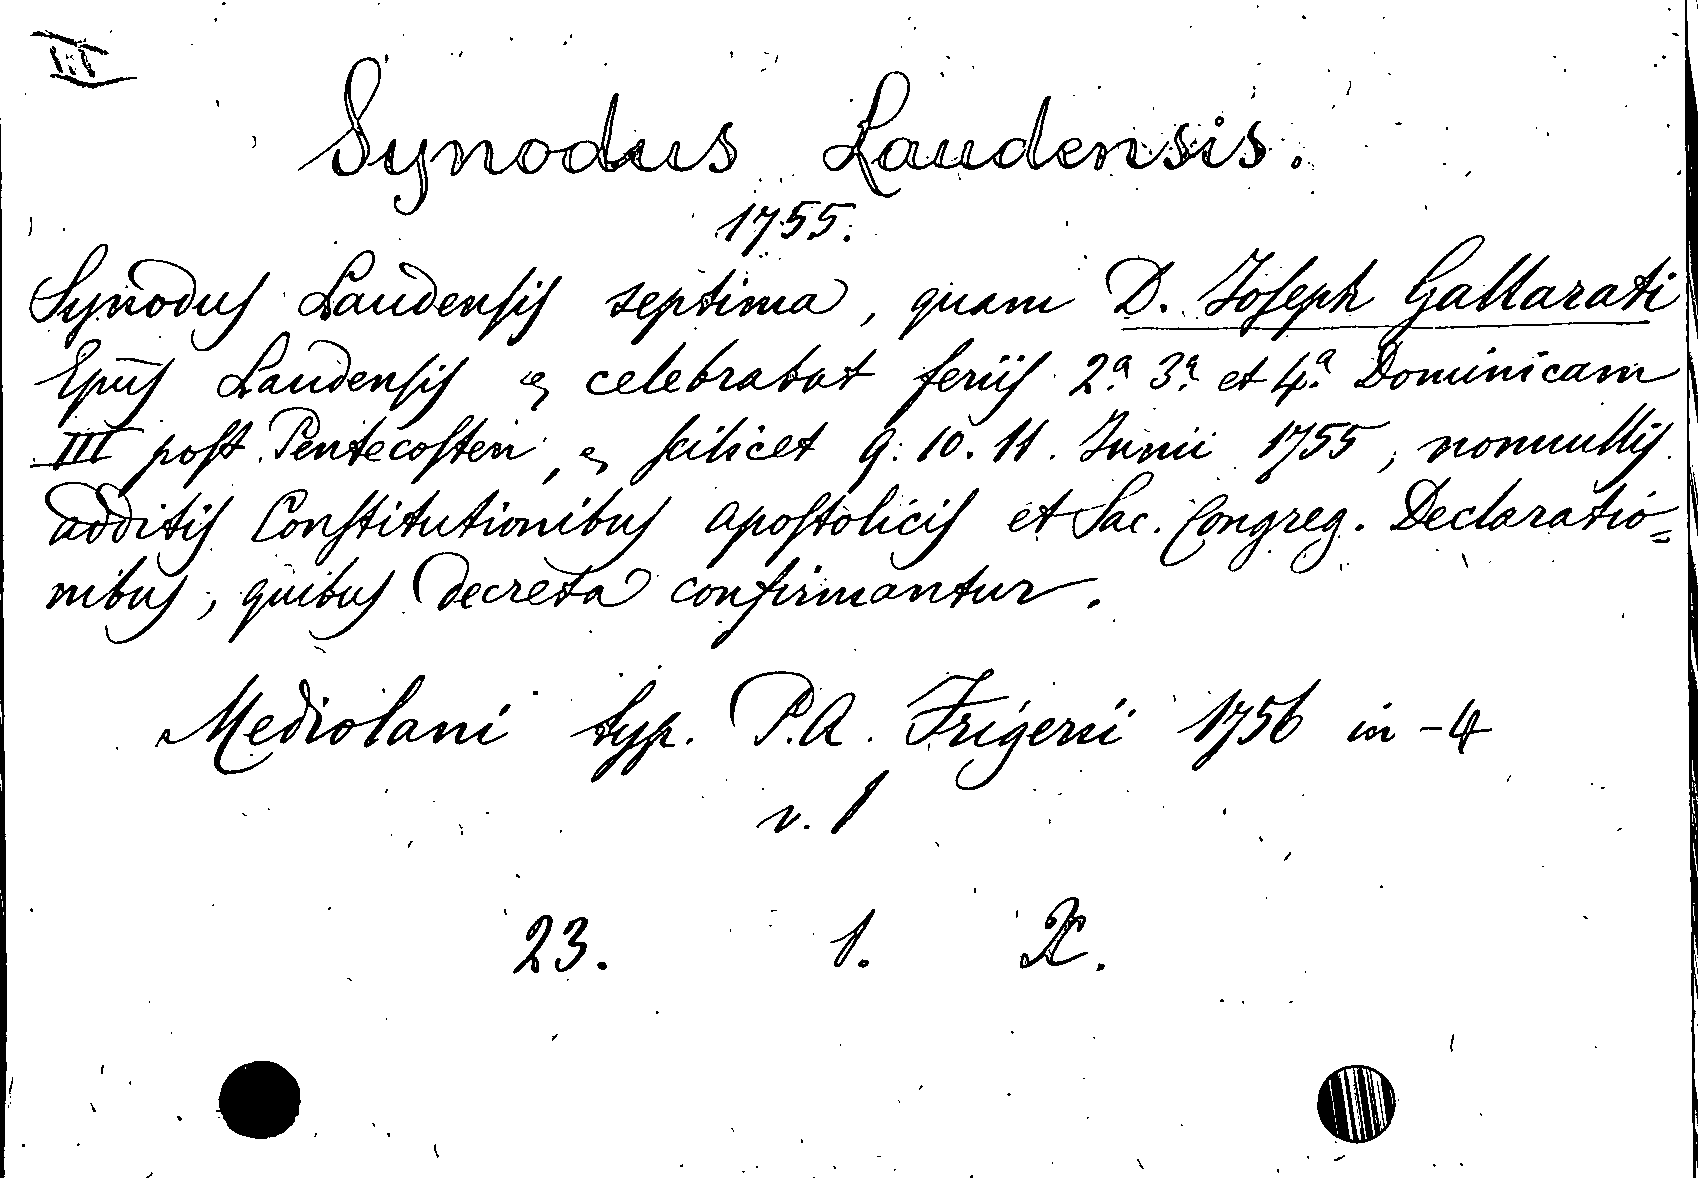 III
Synodus Laudensis.
1755.
Synodus Laudensis septima, quam D. Joseph Gallarati
Epūs Laudensis & celebrabat feriis 2ª 3ª et 4ª Dominicam
III post Pentecosten, & scilicet 9. 10. 11. Junii 1755, nonnullis
additis Constitutionibus apostolicis et Sac. Congreg. Declaratio=
nibus, quibus decreta confirmantur.
Mediolani typ. P.A. Frigerii 1756 in -4
v. 1
23. 1. X.